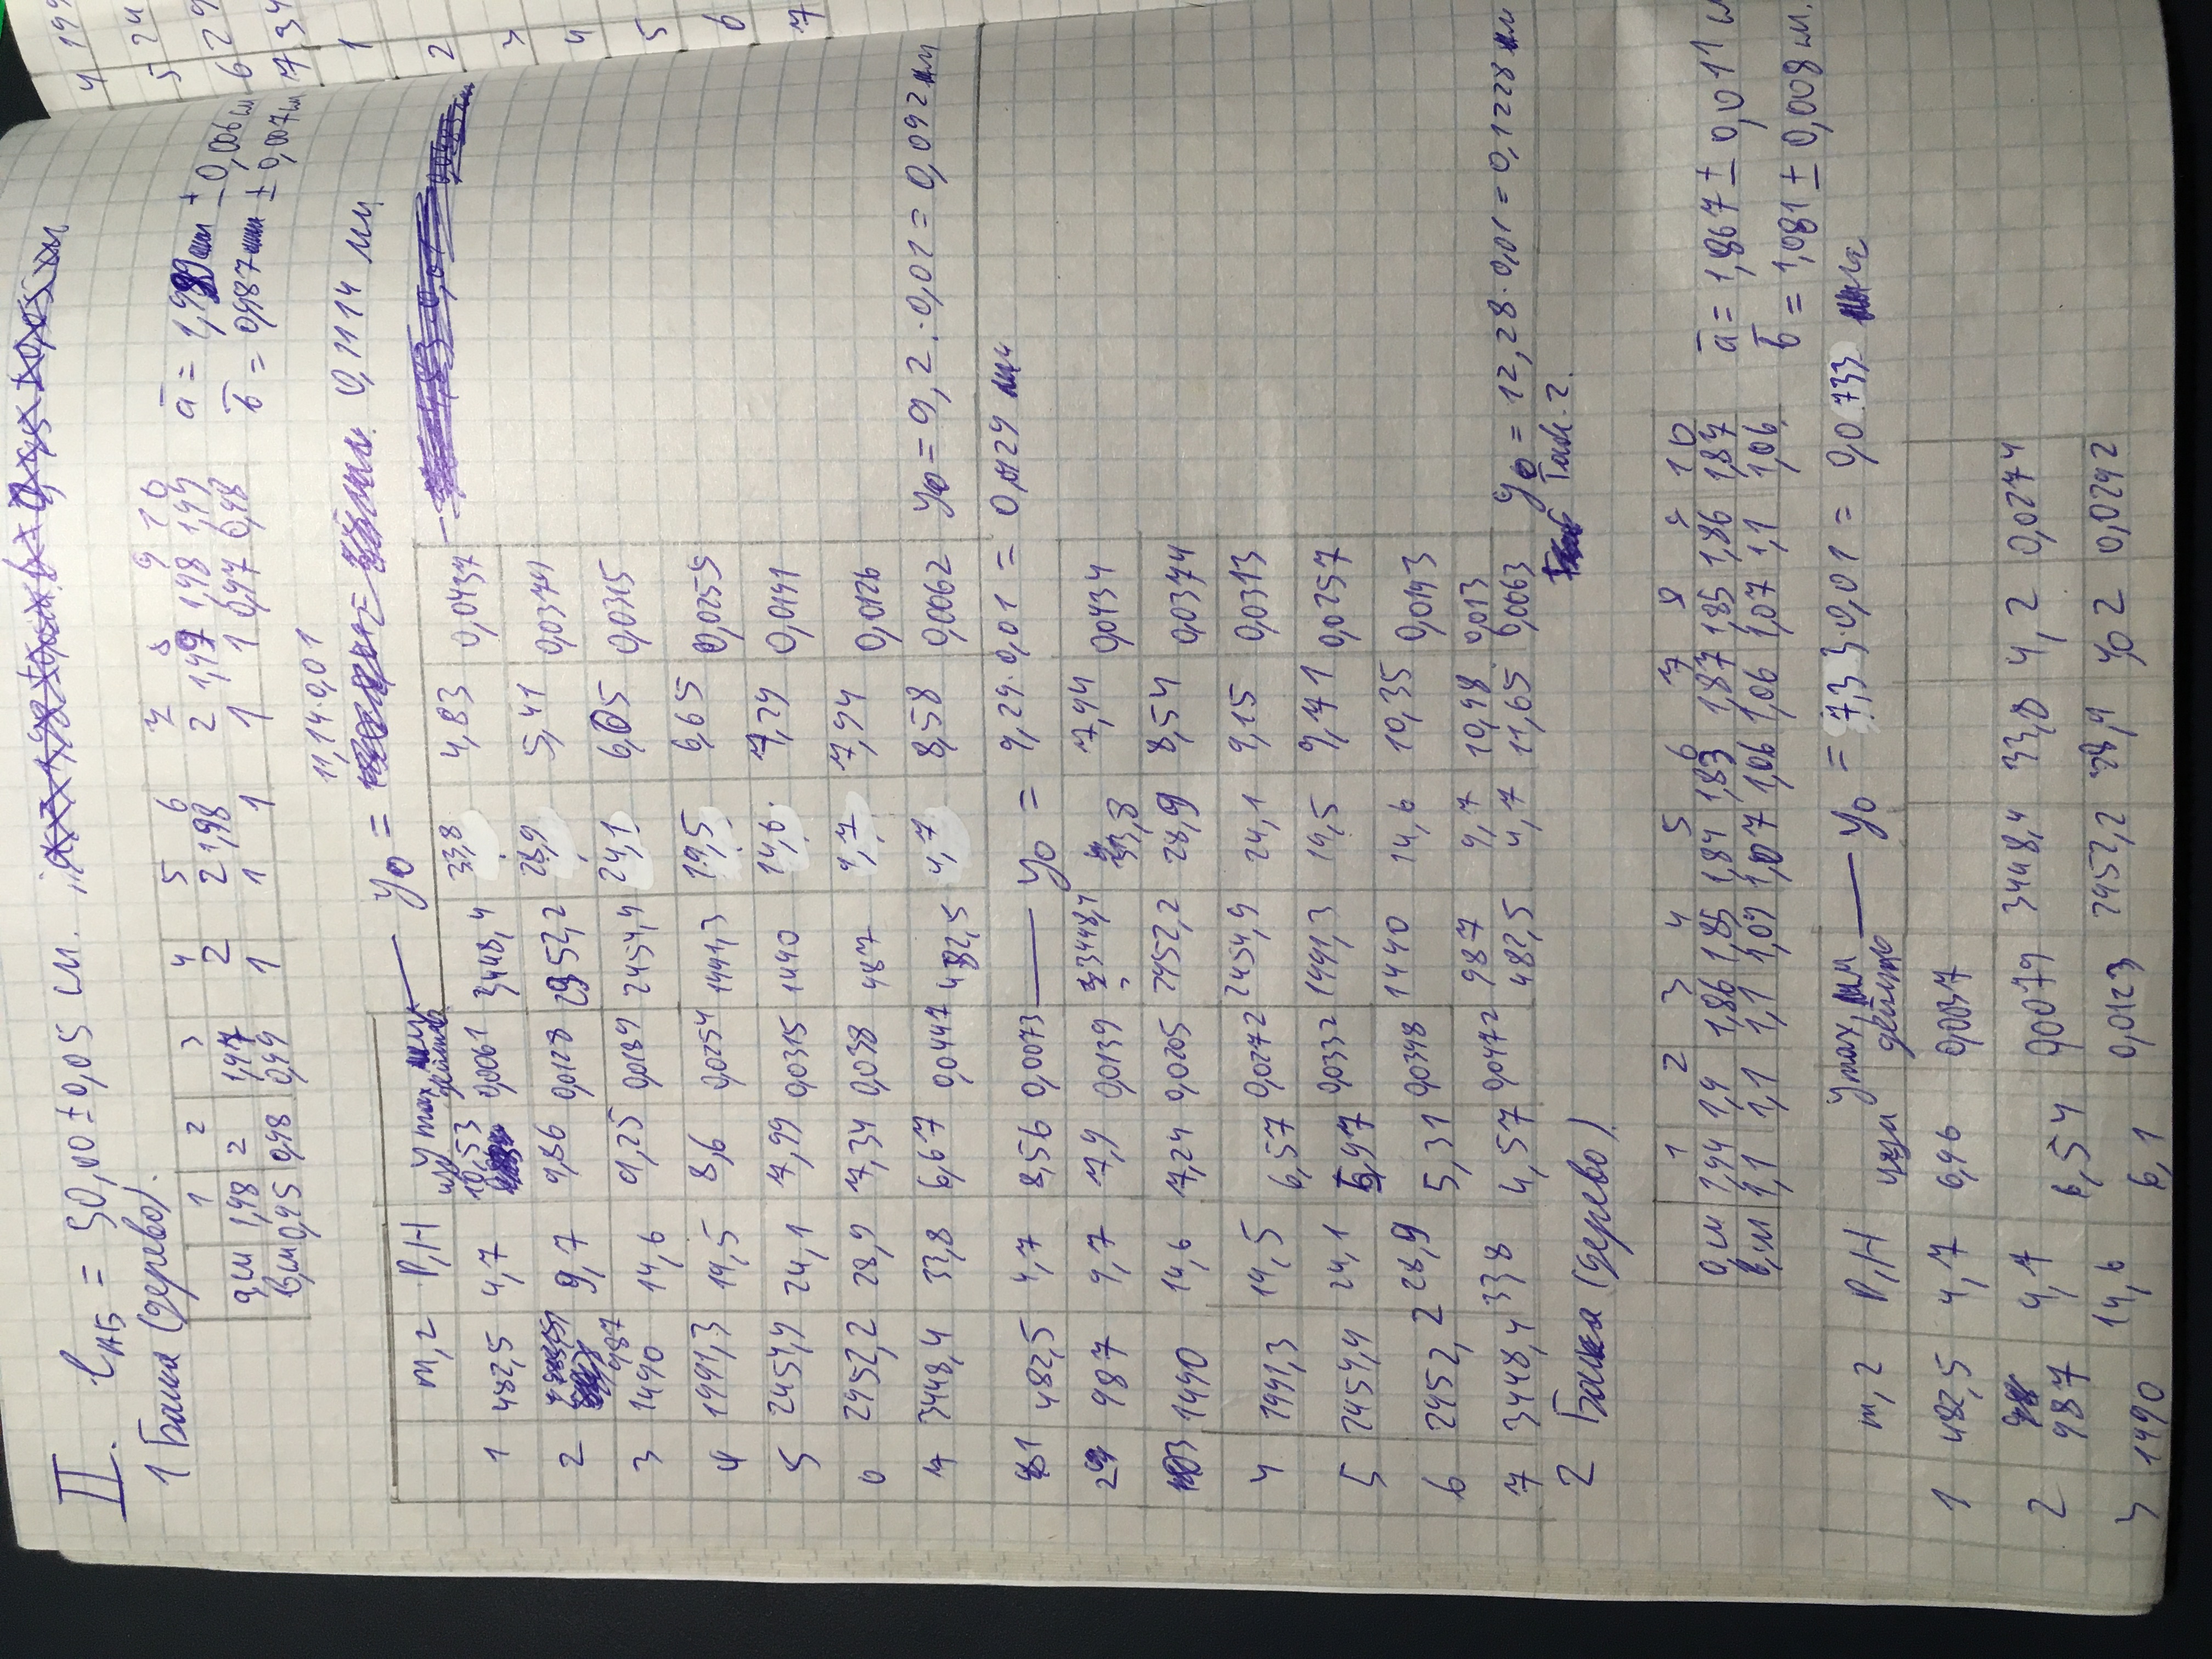 II. lАБ = 50,00 ± 0,05 см.
1 Балка (дерево).
1 2 3 4 5 6 7 8 9 10
a, см 1,98 2 1,97 2 2 1,98 2 1,99 1,98 1,99
b, см 0,95 0,98 0,99 1 1 1 1 1 0,97 0,98
a̅ = 1,989 ± 0,006 см
b̅ = 0,987 ± 0,007 см
11,14·0,01
y₀ = 0,1114 мм
m, г P, H y max,
1 482,5 4,7 10,53 0,0061 3448,4 33,8 4,83 0,0437
2 987 9,7 9,86 0,0128 2952,2 28,9 5,41 0,0379
3 1490 14,6 9,25 0,0189 2454,9 24,1 6,05 0,0315
4 1991,3 19,5 8,6 0,0254 1991,3 19,5 6,65 0,0255
5 2454,9 24,1 7,99 0,0315 1490 14,6 7,29 0,0191
6 2952,2 28,9 7,34 0,038 987 9,7 7,94 0,0126
7 3448,4 33,8 6,67 0,0447 482,5 4,7 8,58 0,0062 y₀ = 9,2·0,01 = 0,092 мм
1 482,5 4,7 8,56 0,0073 y₀ = 9,29·0,01 = 0,0929 мм
2 987 9,7 7,9 0,0139 3448,4 33,8 7,94 0,0434
3 1490 14,6 7,24 0,0205 2952,2 28,9 8,54 0,0374
4 1991,3 19,5 6,57 0,0272 2454,9 24,1 9,15 0,0313
5 2454,9 24,1 5,97 0,0332 1991,3 19,5 9,71 0,0257
6 2952,2 28,9 5,31 0,0398 1490 14,6 10,35 0,0193
7 3448,4 33,8 4,57 0,0472 987 9,7 10,98 0,013
482,5 4,7 11,65 0,0063 y₀ = 12,28·0,01 = 0,1228 мм
Табл. 2.
2 Балка (дерево).
1 2 3 4 5 6 7 8 9 10
a, см 1,94 1,9 1,86 1,85 1,84 1,83 1,87 1,85 1,86 1,87
b, см 1,1 1,1 1,1 1,09 1,07 1,06 1,06 1,07 1,1 1,06
a̅ = 1,867 ± 0,011 см
b̅ = 1,081 ± 0,008 см.
m, г P, H ymax, мм y₀ = 7,33·0,01 = 0,0733
1 482,5 4,7 6,96 0,0037
2 987 9,7 6,54 0,0079 3448,4 33,8 4,2 0,0274
3 1490 14,6 6,1 0,0123 2952,2 28,9 2 0,0292
4 199
5 24
6 29
7 34
1
2
3
4
5
6
7